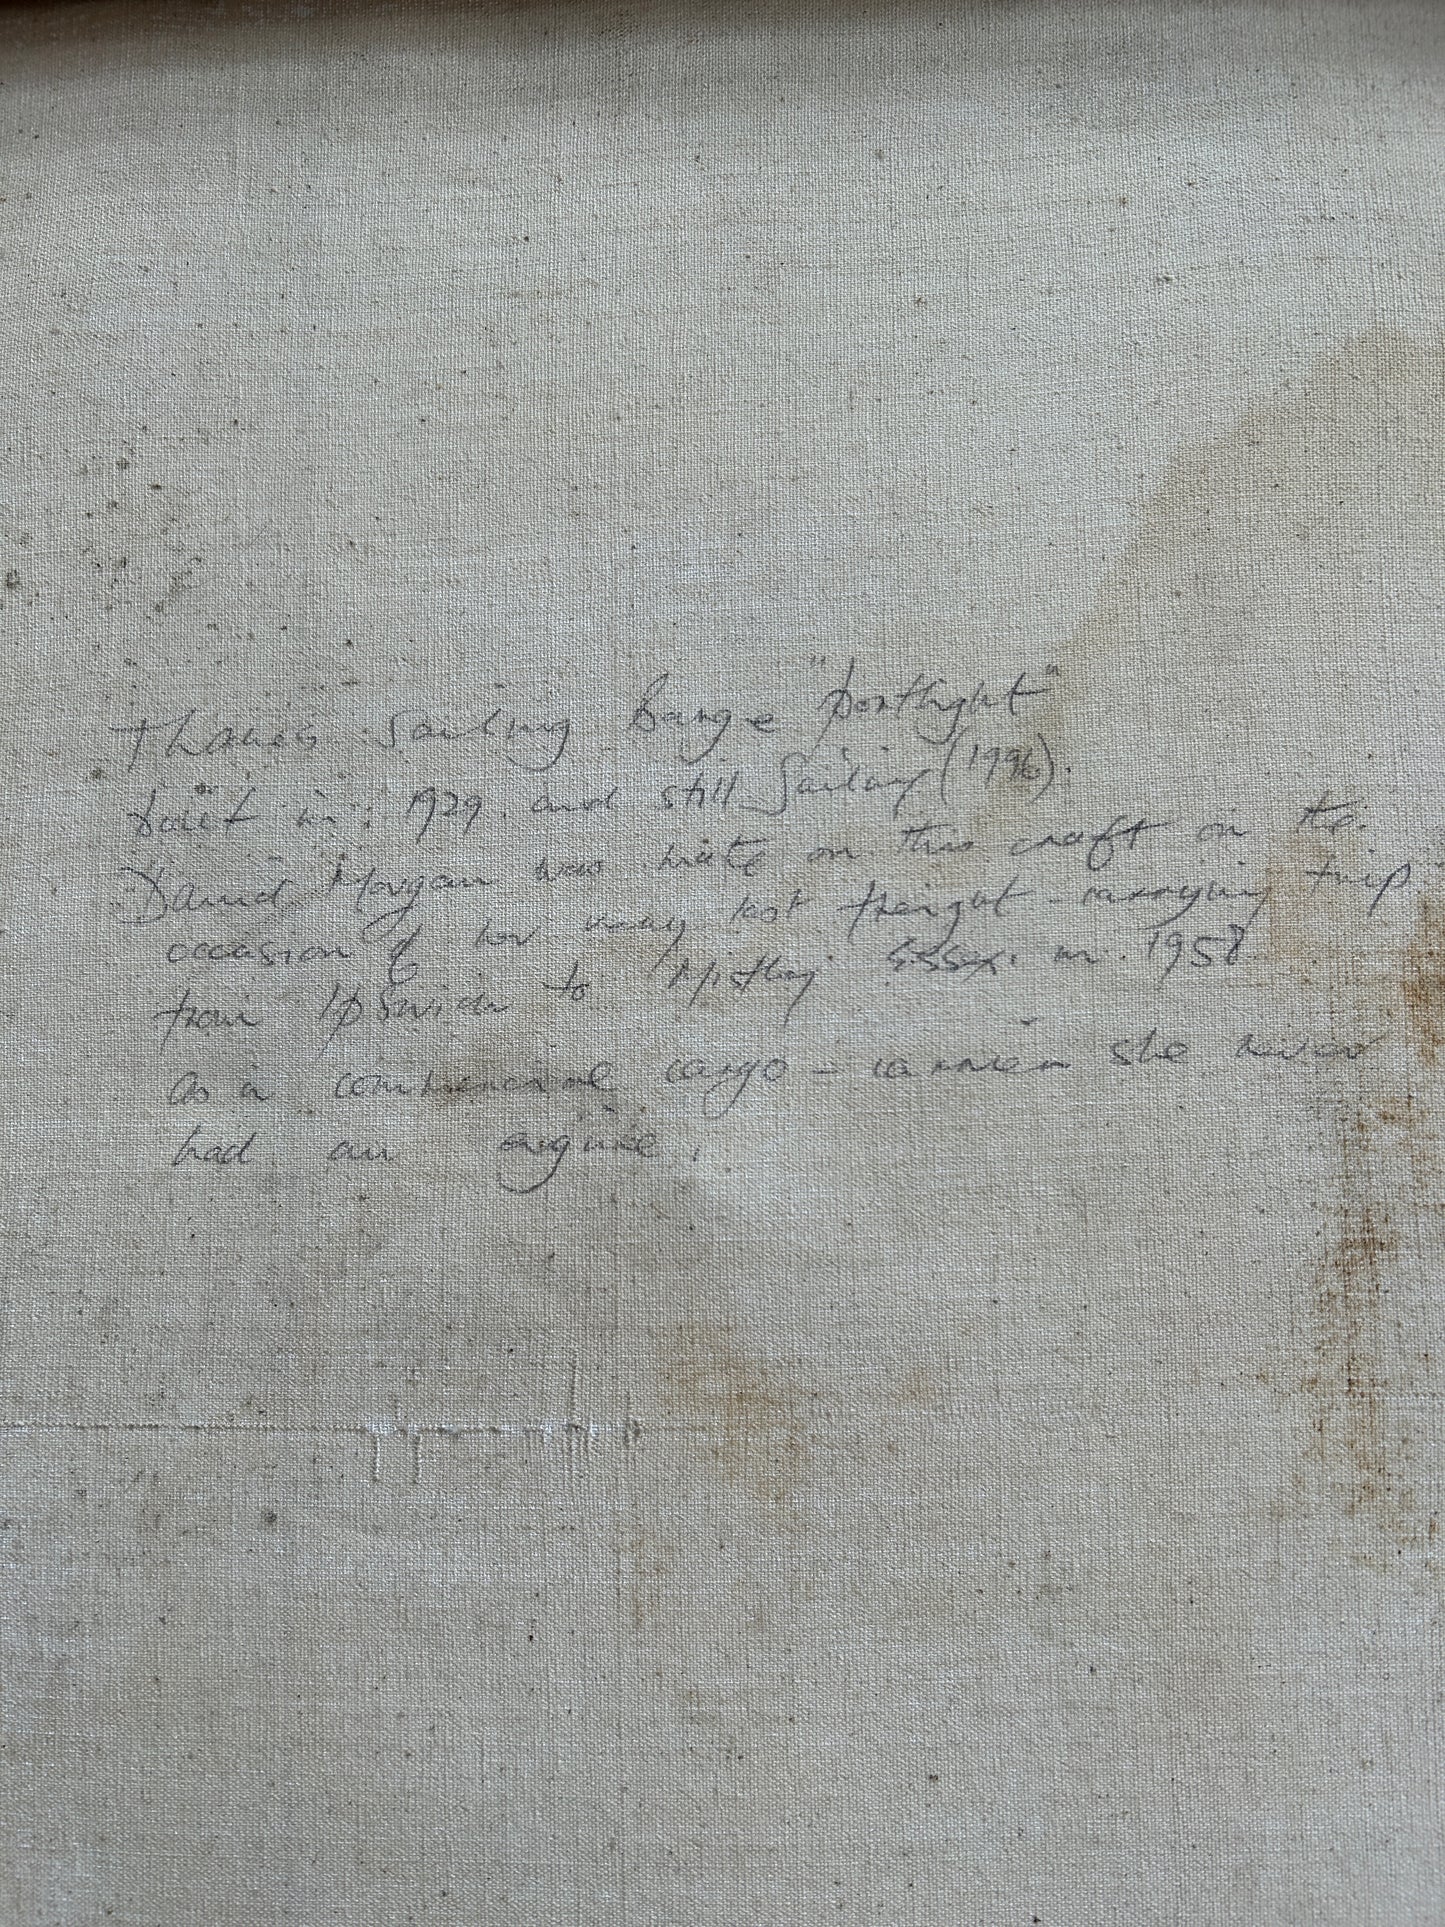 Thames Sailing Barge "Portlight"
built in 1929 and still Sailing (1996).
David Morgan was mate on this craft on the
occasion of her very last freight-carrying trip
from Ipswich to Mistley Essex. in. 1958
as a commercial cargo-carrier she never
had an engine.